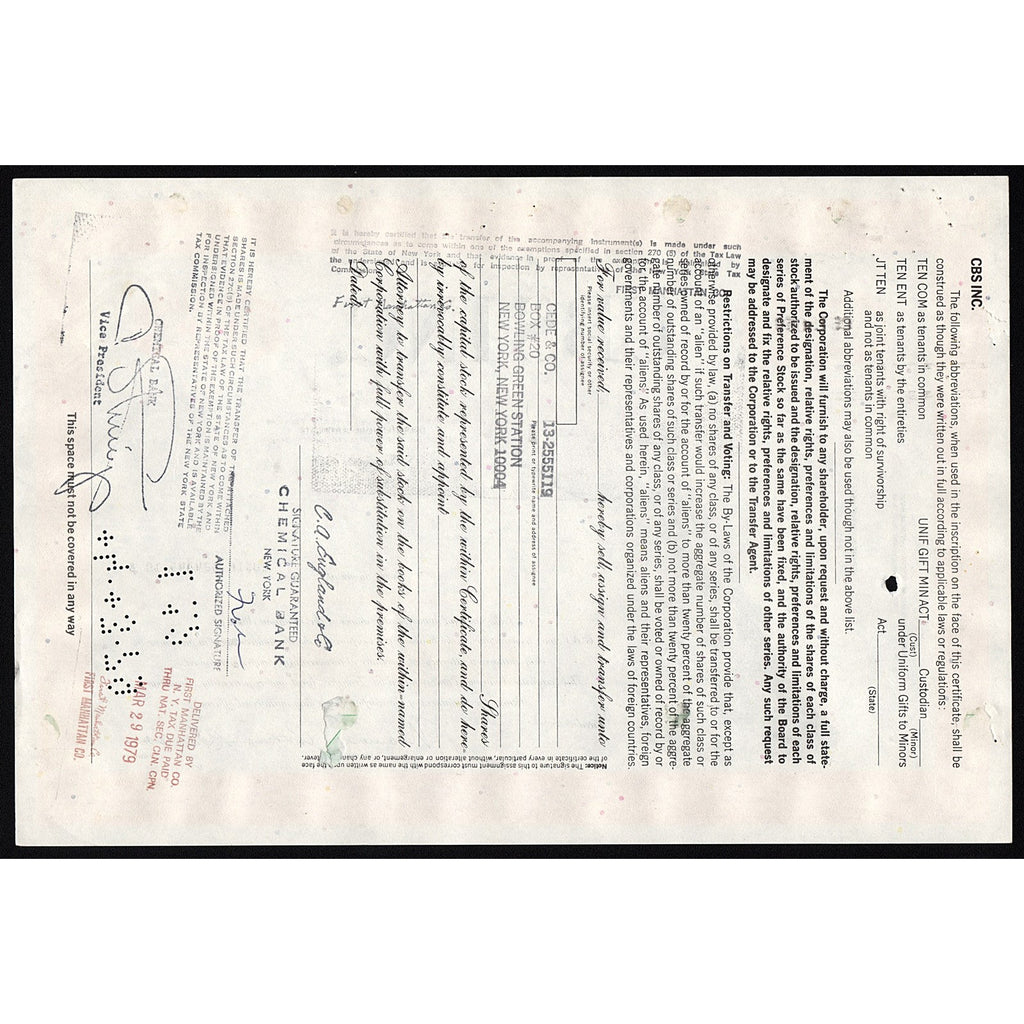 CBS INC.
The following abbreviations, when used in the inscription on the face of this certificate, shall be
construed as though they were written out in full according to applicable laws or regulations:
TEN COM as tenants in common
UNIF GIFT MIN ACT Custodian
(Cust) (Minor)
TEN ENT as tenants by the entireties
under Uniform Gifts to Minors
JT TEN as joint tenants with right of survivorship
and not as tenants in common
Act
(State)
Additional abbreviations may also be used though not in the above list.
The Corporation will furnish to any shareholder, upon request and without charge, a full state-
ment of the designation, relative rights, preferences and limitations of the shares of each class of
stock authorized to be issued and the designation, relative rights, preferences and limitations of each
series of Preference Stock so far as the same have been fixed, and the authority of the Board to
designate and fix the relative rights, preferences and limitations of other series. Any such request
may be addressed to the Corporation or to the Transfer Agent.
Restrictions on Transfer and Voting: The By-Laws of the Corporation provide that, except as
otherwise provided by law, (a) no shares of any class, or of any series, shall be transferred to or for the
account of an "alien" if such transfer would increase the aggregate number of shares of such class or
series owned of record by or for the account of "aliens" to more than twenty percent of the aggregate
number of outstanding shares of such class or series and (b) not more than twenty percent of the aggre-
gate number of outstanding shares of any class, or of any series, shall be voted or owned of record by or
for the account of "aliens." As used herein, "aliens" means aliens and their representatives, foreign
governments and their representatives and corporations organized under the laws of foreign countries.
It is hereby certified that the transfer of the accompanying instrument(s) is made under such
circumstances as to come within one of the exemptions specified in section 270 Tax Law
of the State of New York and that evidence in
for inspection by representatives Tax
For value received, hereby sell, assign and transfer unto
Please insert social security or other
identifying number of assignee
CEDE & CO. 13-2555119
Please print or typewrite name and address of assignee
BOX #20
BOWLING GREEN STATION
NEW YORK, NEW YORK 10004
Shares
of the capital stock represented by the within Certificate, and do here-
by irrevocably constitute and appoint
Attorney to transfer the said stock on the books of the within-named
Corporation with full power of substitution in the premises.
Dated,
Notice: The signature to this assignment must correspond with the name as written upon the face
of the certificate in every particular, without alteration or enlargement, or any change whatever.
C.A. England & Co
SIGNATURE GUARANTEED
CHEMICAL BANK
NEW YORK
AUTHORIZED SIGNATURE
IT IS HEREBY CERTIFIED THAT THE TRANSFER OF THE ATTACHED
SHARES IS MADE UNDER SUCH CIRCUMSTANCES AS TO COME WITHIN
SECTION 270(5) OF THE TAX LAW OF THE STATE OF NEW YORK AND
THAT EVIDENCE IN PROOF OF THE EXEMPTION IS MAINTAINED BY THE
UNDERSIGNED WITHIN THE STATE OF NEW YORK AND IS AVAILABLE
FOR INSPECTION BY REPRESENTATIVES OF THE NEW YORK STATE
TAX COMMISSION.
CHEMICAL BANK
Vice President
DELIVERED BY
FIRST MANHATTAN CO.
N. Y. TAX DUE PAID
THRU NAT. SEC. CLN. CPN.
MAR 29 1979
First Manhattan Co
FIRST MANHATTAN CO.
This space must not be covered in any way